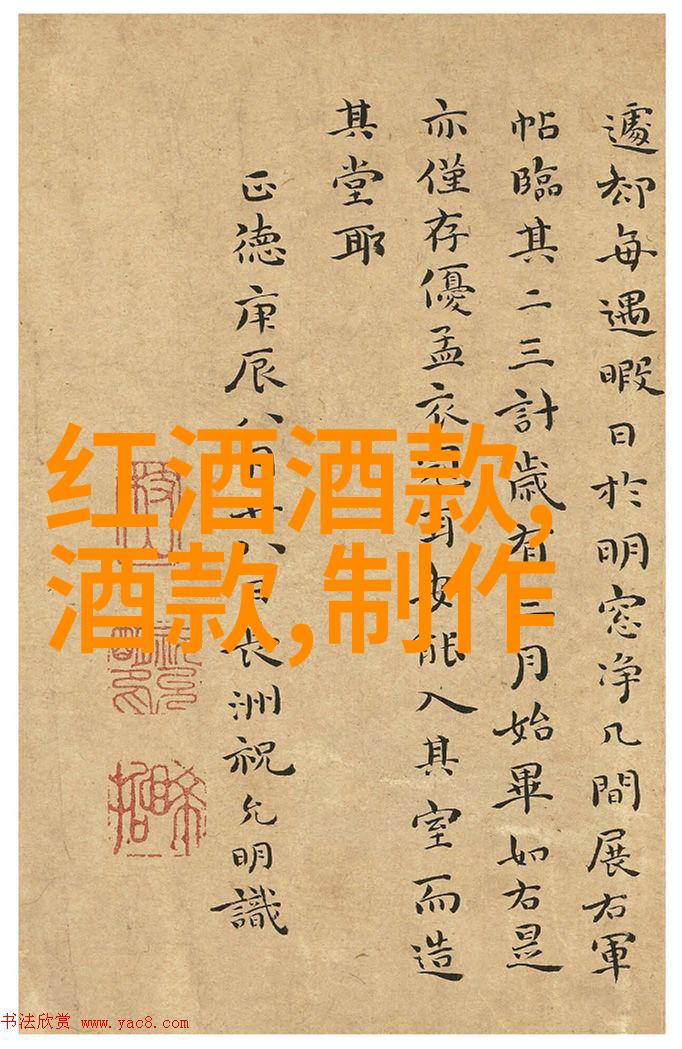 遽却每遇暇日於明窓净几間展右軍
帖臨其二三計歲有二月始畢如右是
亦僅存優孟衣冠耳安能入其室而造
其堂耶
正德庚辰八月廿八日長洲祝允明識
红酒酒款,
酒款,制作
书法欣赏 www.yac8.com